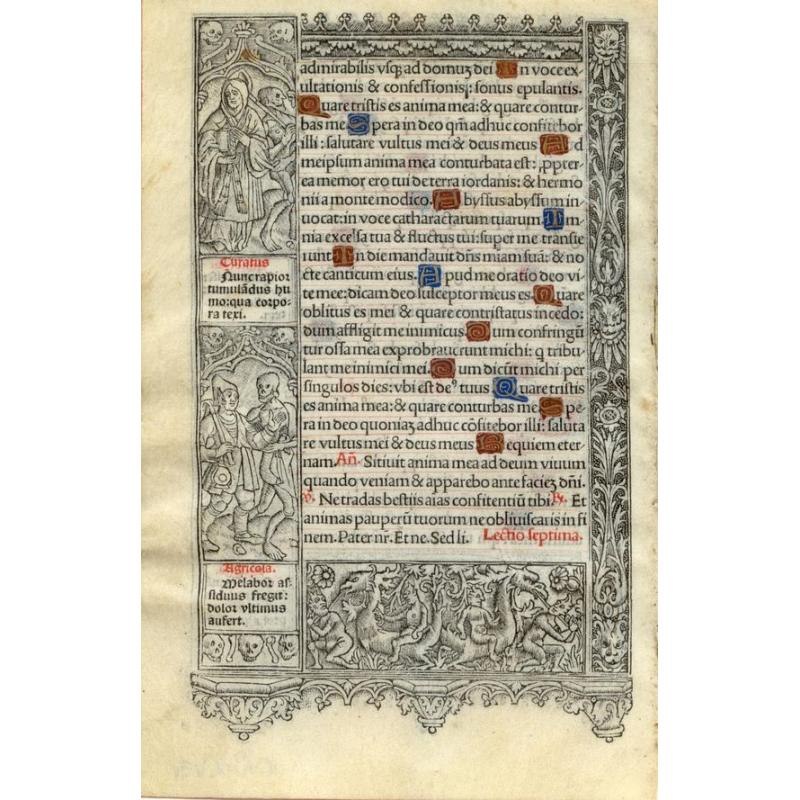 admirabilis vsq; ad domuȝ dei In voce ex
ultationis & confessionis: sonus epulantis.
Quare tristis es anima mea: & quare contur-
bas me Spera in deo qm̄ adhuc confitebor
illi: salutare vultus mei & deus meus Ad
meipsum anima mea conturbata est: ꝓpter
ea memor ero tui de terra iordanis: & hermo
nii a monte modico. Abyssus abyssum in-
uocat: in voce catharactarum tuarum. Om
nia excelsa tua & fluctus tui: super me transie
runt In die mandauit dn̄s miam̄ suā: & no
cte canticum eius. Apud me oratio deo vi-
te mee: dicam deo susceptor meus es. Quare
oblitus es mei & quare contristatus incedo:
dum affligit me inimicus. Dum confringū
tur ossa mea exprobrauerunt michi: q tribu-
lant me inimici mei. Dum dicūt michi per
singulos dies: vbi est deꝰ tuus Quare tristis
es anima mea: & quare conturbas me. Spe-
ra in deo quoniaȝ adhuc cōfitebor illi: saluta
re vultus mei & deus meus Requiem eter-
nam. Añ. Sitiuit anima mea ad deum viuum
quando veniam & apparebo ante facieȝ dn̄i.
℣. Ne tradas bestiis aīas confitentiū tibi. ℟. Et
animas pauperū tuorum ne obliuiscaris in fi
nem. Pater nr̄. Et ne. Sed li. Lectio septima.
Curatus
Nunc rapior
tumulādus hu
mo: qua corpo-
ra texi.
Agricola.
Me labor as-
siduus fregit:
dolor vltimus
aufert.